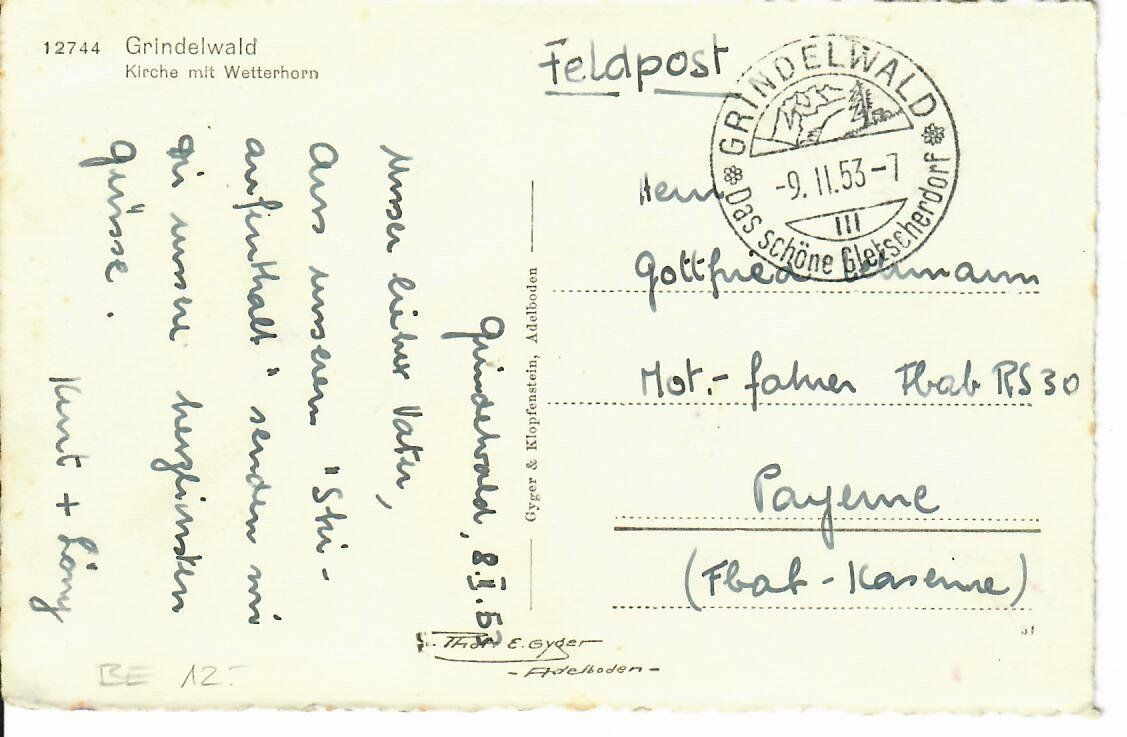 12744 Grindelwald
Kirche mit Wetterhorn
Feldpost
GRINDELWALD
-9. II. 53 - 7
III
Das schöne Gletscherdorf
Herrn
Gottfried
Mot.- fahrer Flab RS 30
Payerne
(Flab - Kaserne)
Grindelwald, 8. II. 53
Unser lieber Vater,
Aus unserem "Ski-
aufenthalt" senden wir
Dir unsere herzlichsten
Grüsse.
Kurt +
Gyger & Klopfenstein, Adelboden
Phot. E. Gyger
- Adelboden -
BE 12.-